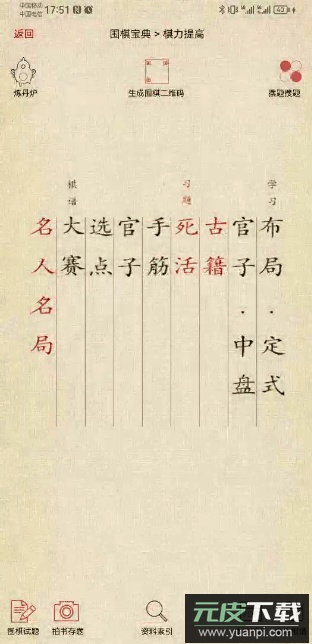 中国移动
中国电信
17:51
43
返回
围棋宝典 > 棋力提高
炼丹炉
生成围棋二维码
搜题搜题
学习
布局·定式
官子·中盘
古籍
习题
死活
手筋
官子
选点
棋谱
大赛
名人名局
围棋试题
拍书存卷
资料索引
元皮下载
www.yuanpi.com